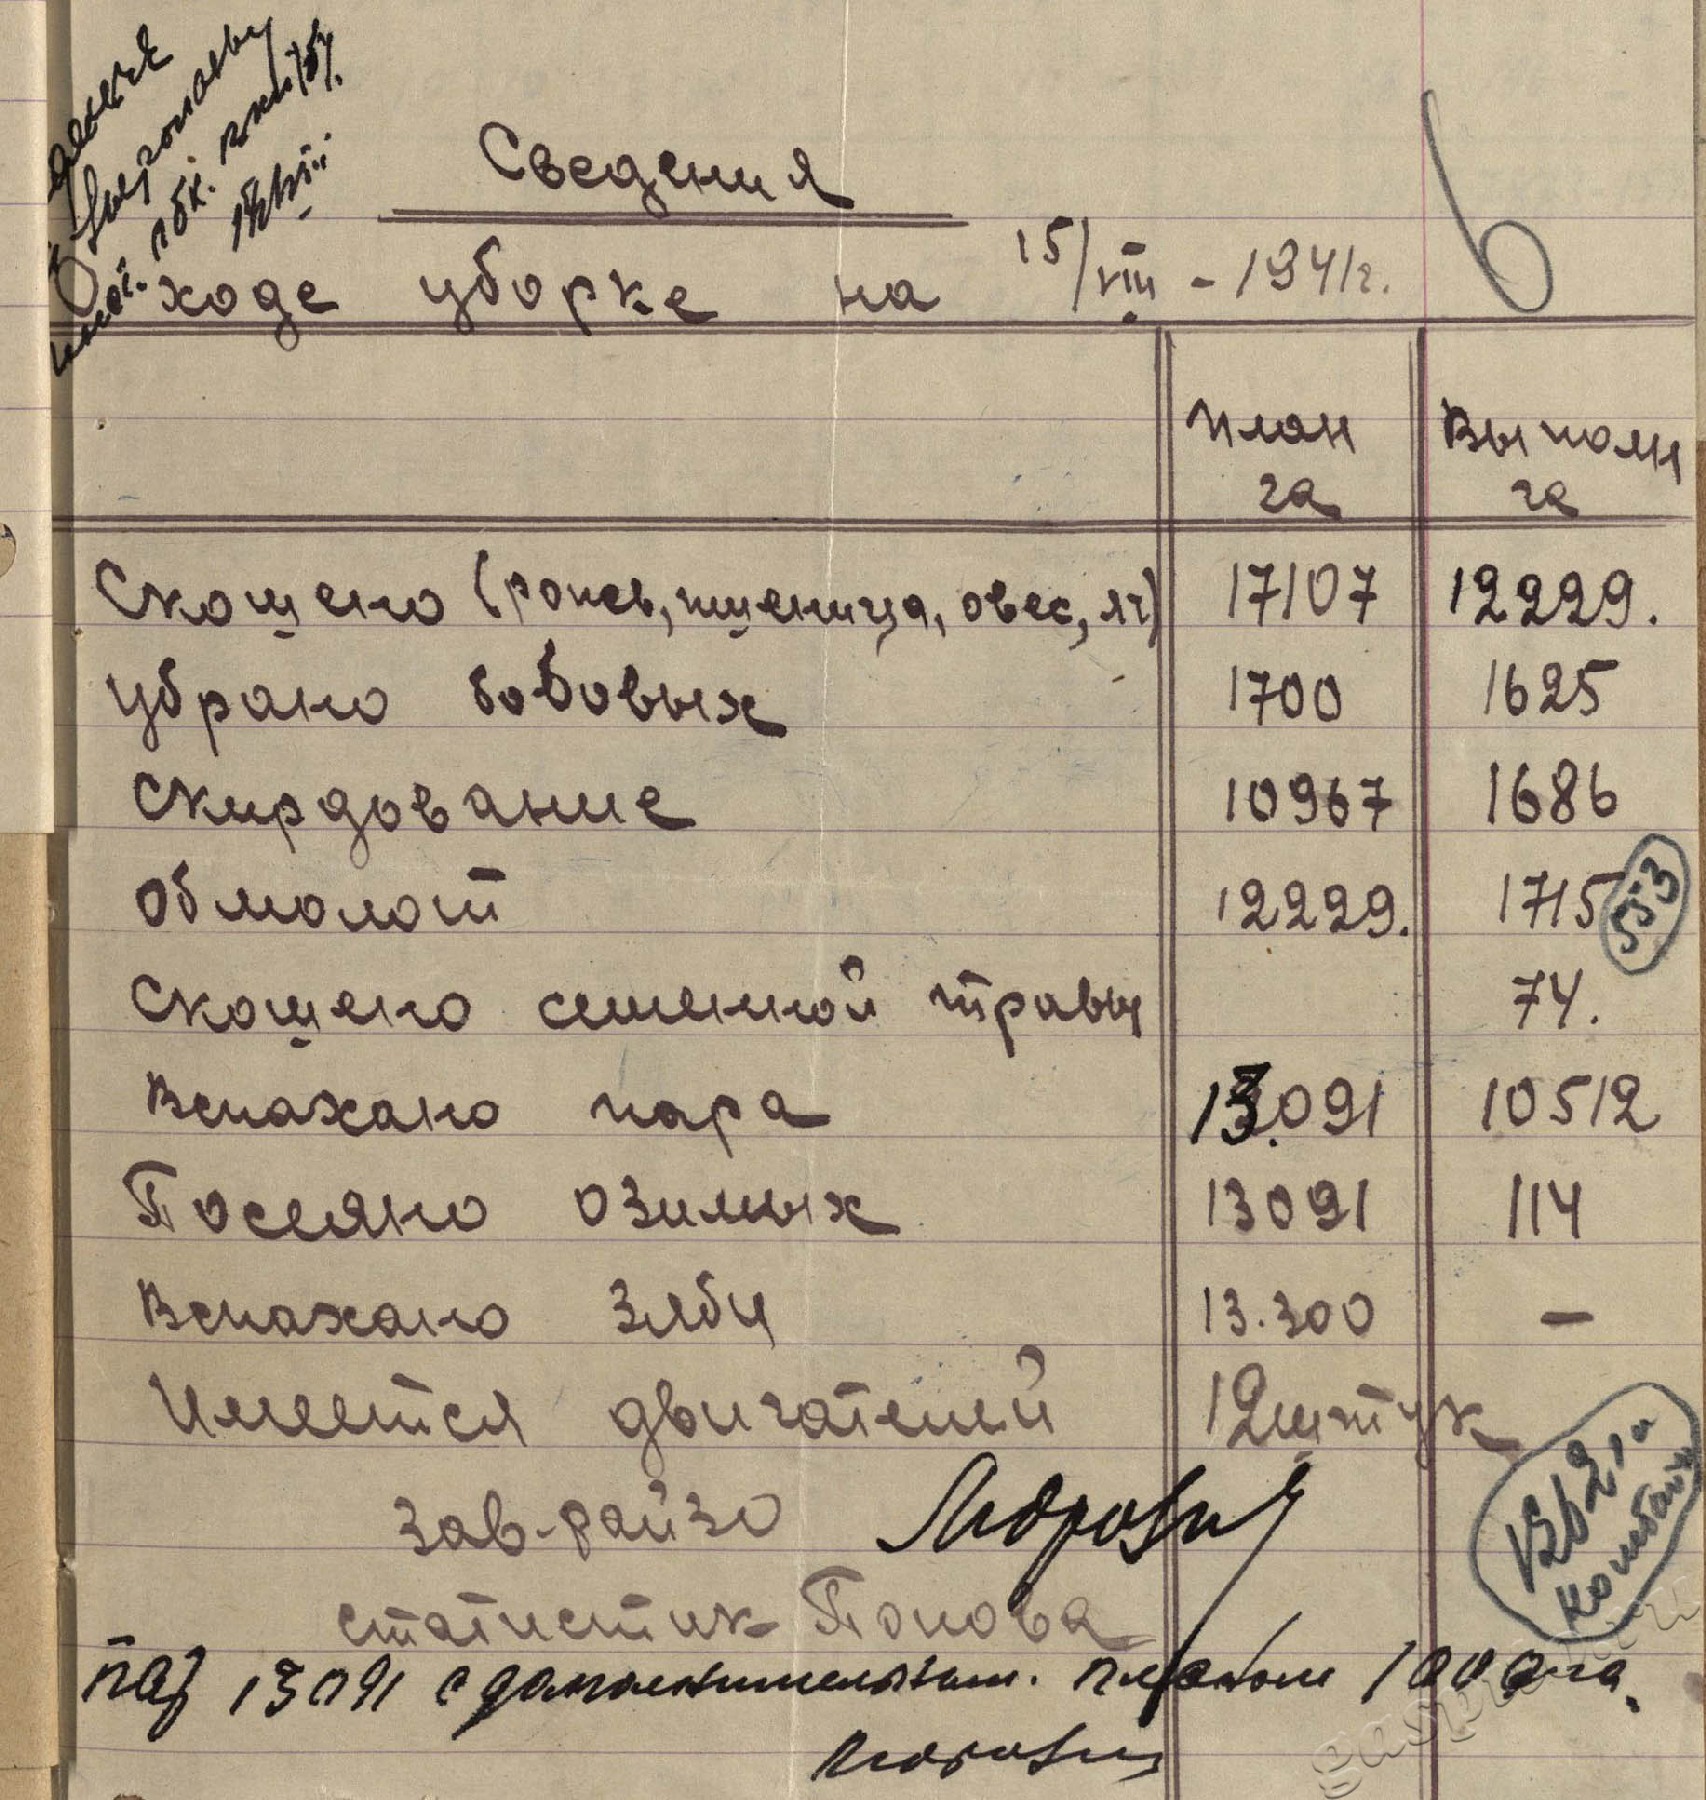 Сведения
О ходе уборке на 15/VIII - 1941г.
6
план Выполн
га га
Скошено (рожь, пшеница, овес, яч) 17107 12229.
убрано бобовых 1700 1625
Скирдование 10967 1686
Обмолот 12229. 1715
553
Скошено семенной травы 74.
Вспахано пара 13.091 10512
Посеяно озимых 13091 114
Вспахано зяби 13.300 —
Имеется двигателей 12 штук
Зав-райзо
статистик Попова
пар 13091 с дополнительным. планом 1000 га.
gaspi